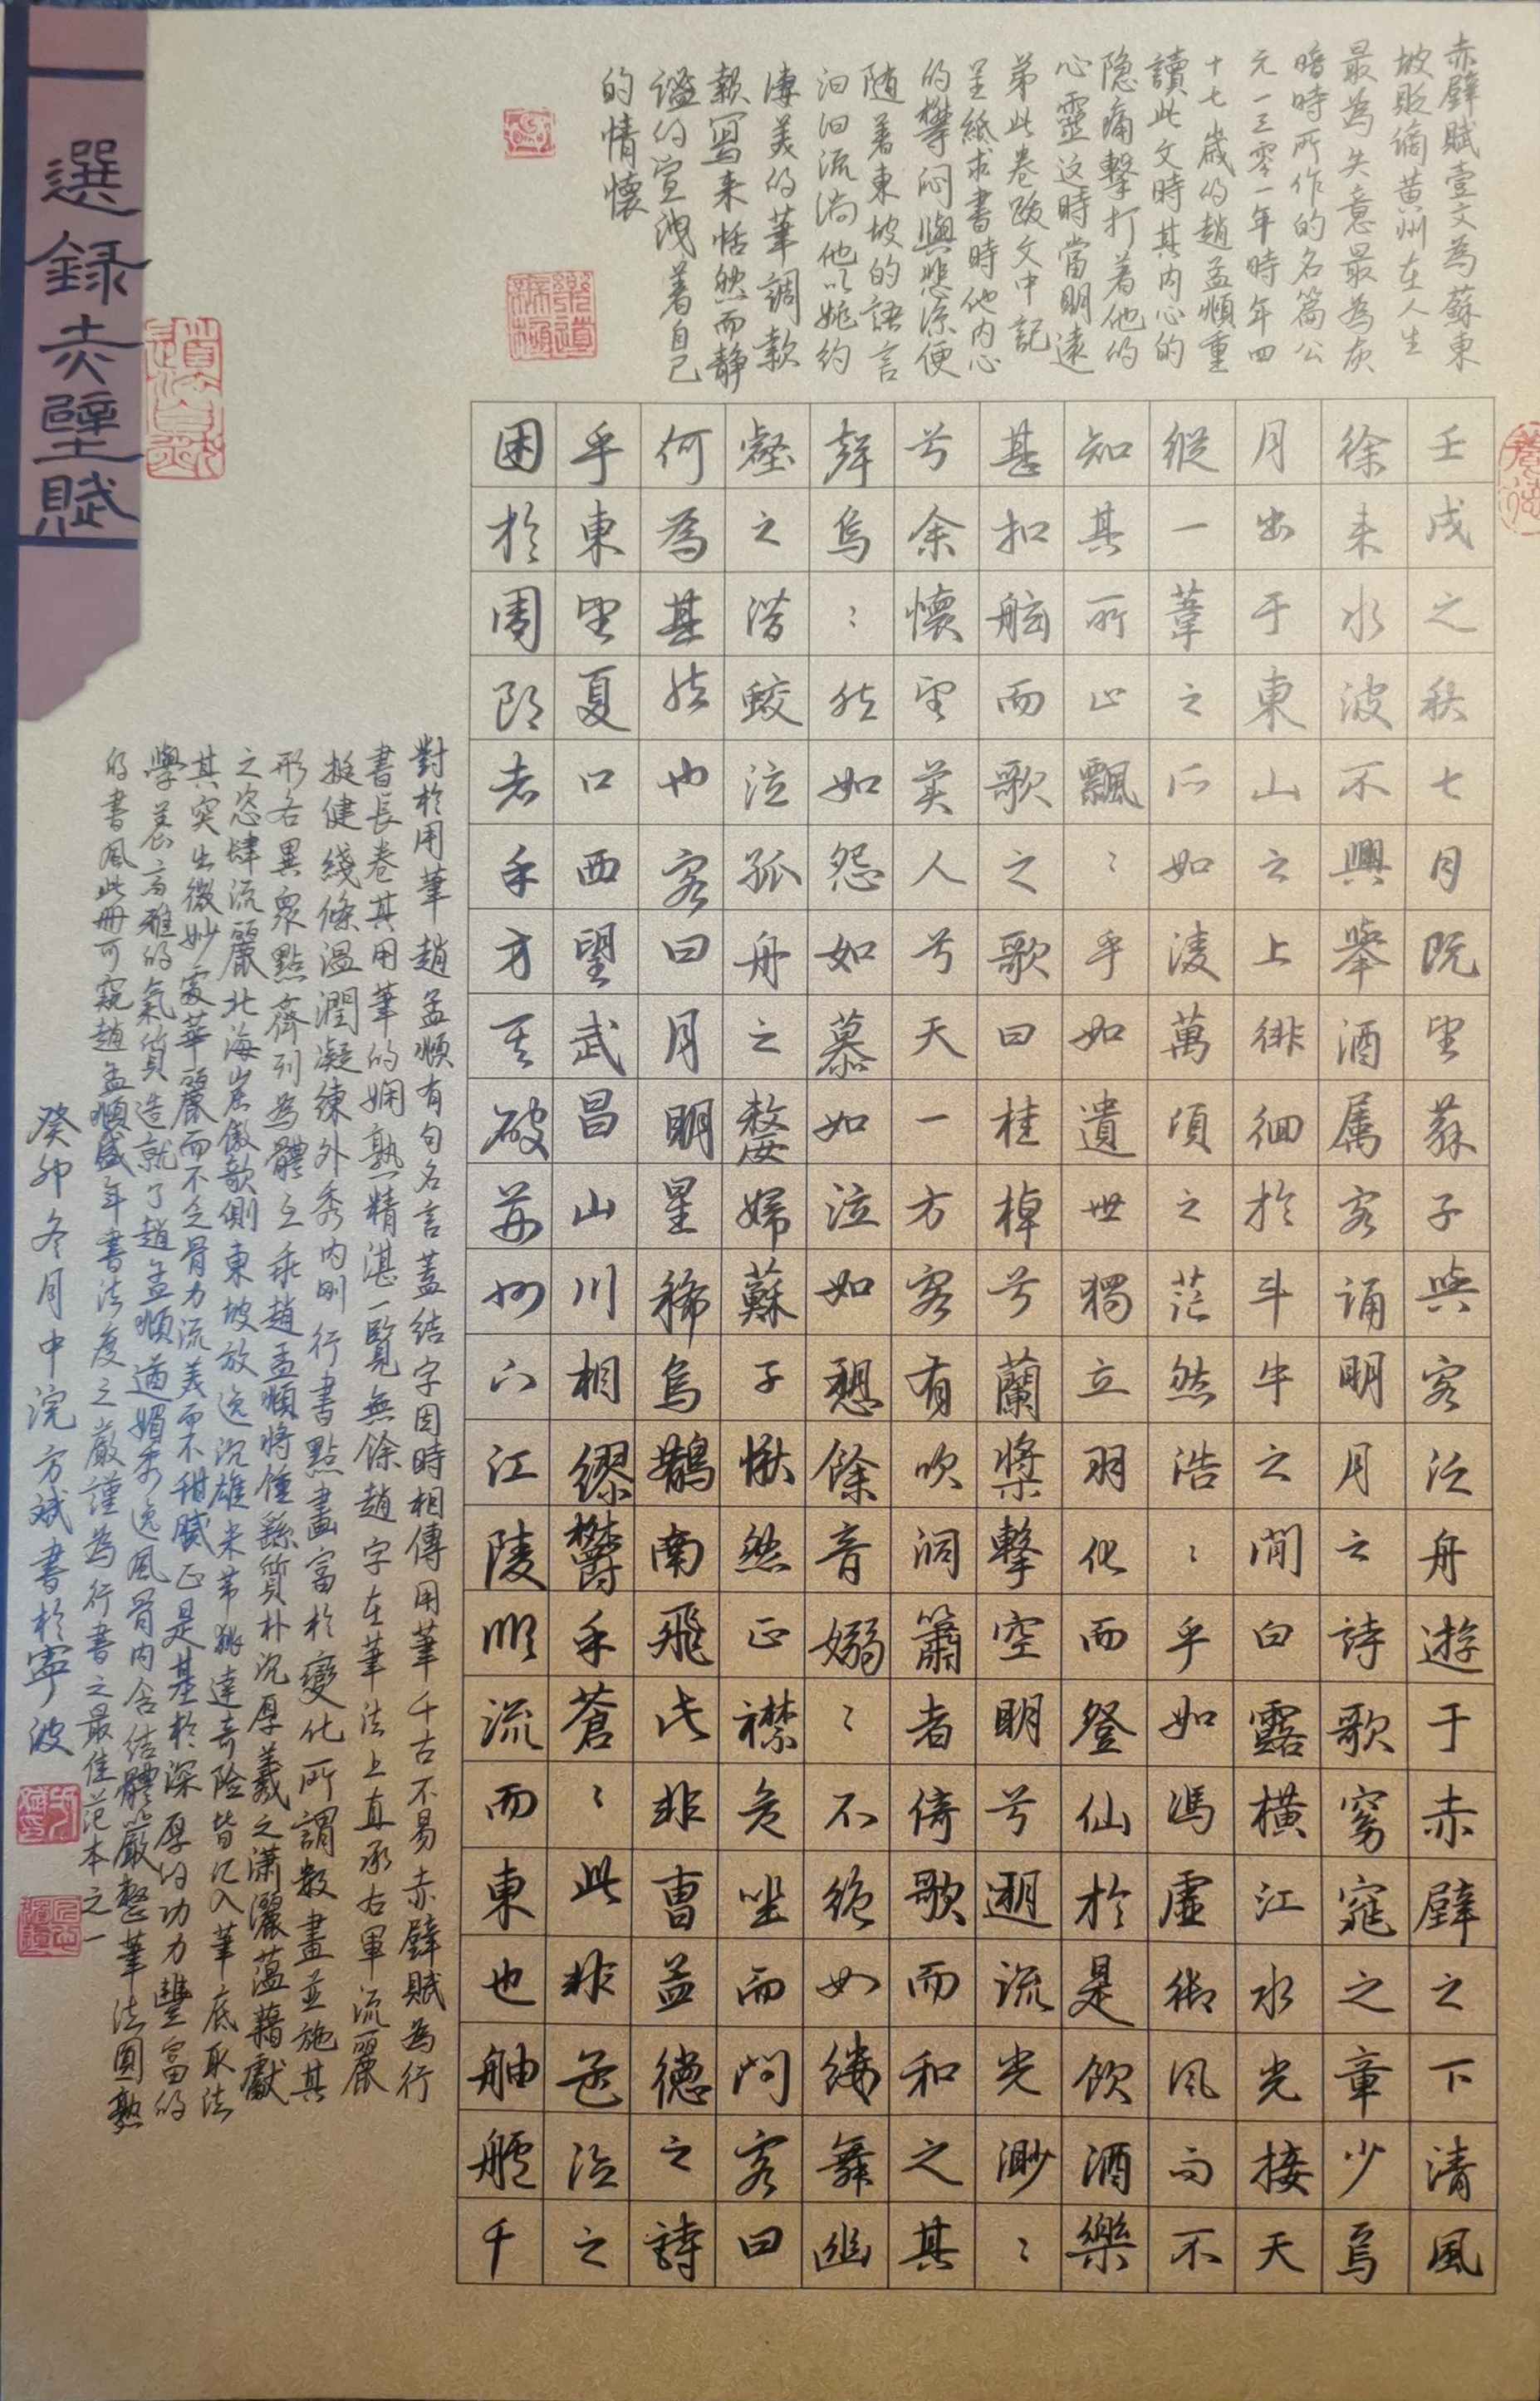 選録赤壁賦
赤壁賦壹文為蘇東
坡貶謫黄州在人生
最為失意最為灰
暗時所作的名篇公
元一三零一年時年四
十七歲的趙孟頫重
讀此文時其内心的
隐痛擊打着他的
心靈这時當明遠
弟此卷跋文中記
呈紙求書時他内心
的鬱闷與悲凉便
随着東坡的語言
汩汩流淌他以婉约
美的筆調款
款寫来恬然而静
谧的宣洩着自己
的情懷
壬戌之秋七月既望蘇子與客泛舟遊于赤壁之下清風
徐来水波不興舉酒属客誦明月之詩歌窈窕之章少焉
月出于東山之上徘徊於斗牛之間白露横江水光接天
縱一葦之所如凌萬頃之茫然浩〻乎如馮虚御風而不
知其所止飄〻乎如遺世獨立羽化而登仙於是飲酒樂
甚扣舷而歌之歌曰桂棹兮蘭槳擊空明兮遡流光渺〻
兮余懷望美人兮天一方客有吹洞簫者倚歌而和之其
聲烏〻然如怨如慕如泣如愬餘音嫋〻不絶如縷舞幽
壑之潜蛟泣孤舟之嫠婦蘇子愀然正襟危坐而問客曰
何為其然也客曰月明星稀烏鵲南飛此非曹孟德之詩
乎東望夏口西望武昌山川相繆鬱乎蒼〻此非孟德之
困於周郎者乎方其破荊州下江陵順流而東也舳艫千
對於用筆趙孟頫有句名言蓋結字因時相傳用筆千古不易赤壁賦為行
書長卷其用筆的娴熟精湛一覽無餘趙字在筆法上直承右軍流麗
挺健綫條温潤凝練外秀内刚行書點畫富於變化所謂数畫並施其
形各異衆點齊列為體互乖趙孟頫將鍾繇質朴沉厚羲之潇灑藴藉獻
之恣肆流麗北海傲歌側東坡放逸沉雄米芾跳達奇险皆化入筆底取法
其突出微妙處華麗而不乏骨力流美而不甜腻正是基於深厚的功力豐富的
學養高雅的氣質造就了趙孟頫遒媚秀逸風骨内含結體嚴整筆法圓熟
的書風此冊可窺趙孟頫盛年書法度之嚴謹為行書之最佳范本之一
癸卯冬月中浣方斌書於寧波